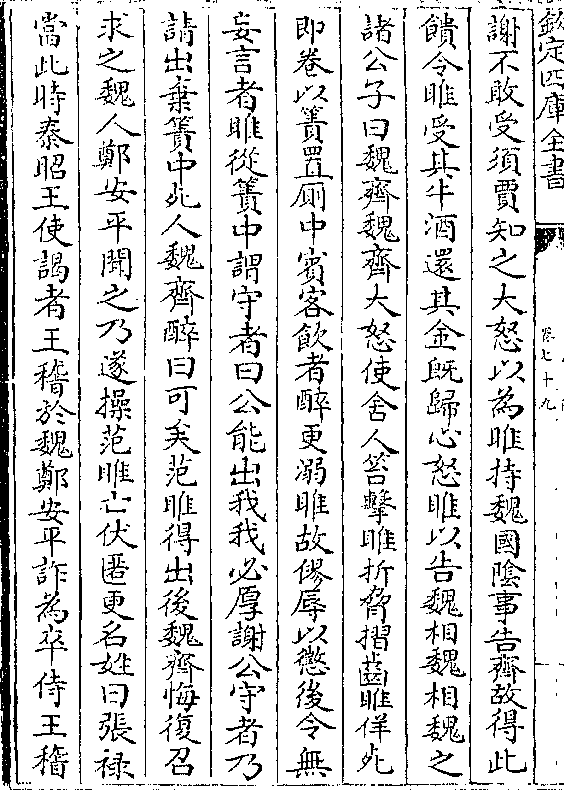 欽定四庫全書
卷七十九
謝不敢受須賈知之大怒以為雎持魏國隂事告齊故得此
饋令雎受其牛酒還其金既歸心怒雎以告魏相魏相魏之
諸公子曰魏齊魏齊大怒使舍人笞擊雎折脅摺齒雎佯死
即卷以簀置厠中賓客飲者醉更溺雎故僇辱以懲後令無
妄言者雎從簀中謂守者曰公能出我我必厚謝公守者乃
請出棄簀中死人魏齊醉曰可矣范雎得出後魏齊悔復召
求之魏人鄭安平聞之乃遂操范雎亡伏匿更名姓曰張禄
當此時秦昭王使謁者王稽於魏鄭安平詐為卒侍王稽